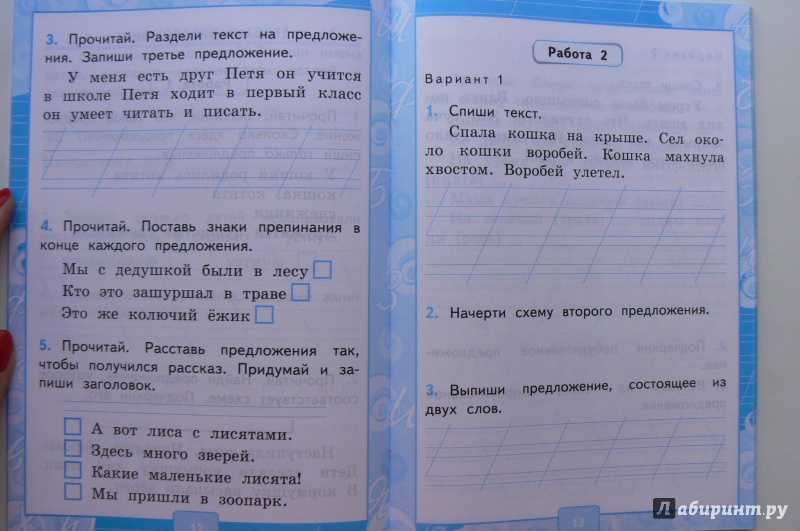 3. Прочитай. Раздели текст на предложе-
ния. Запиши третье предложение.
У меня есть друг Петя он учится
в школе Петя ходит в первый класс
он умеет читать и писать.
4. Прочитай. Поставь знаки препинания в
конце каждого предложения.
Мы с дедушкой были в лесу
Кто это зашуршал в траве
Это же колючий ёжик
5. Прочитай. Расставь предложения так,
чтобы получился рассказ. Придумай и за-
пиши заголовок.
А вот лиса с лисятами.
Здесь много зверей.
Какие маленькие лисята!
Мы пришли в зоопарк.
Работа 2
Вариант 1
1. Спиши текст.
Спала кошка на крыше. Сел око-
ло кошки воробей. Кошка махнула
хвостом. Воробей улетел.
2. Начерти схему второго предложения.
3. Выпиши предложение, состоящее из
двух слов.
Лабиринт.ру